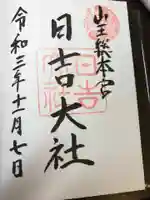 山王総本宮
日吉大社
令和三年十一月七日